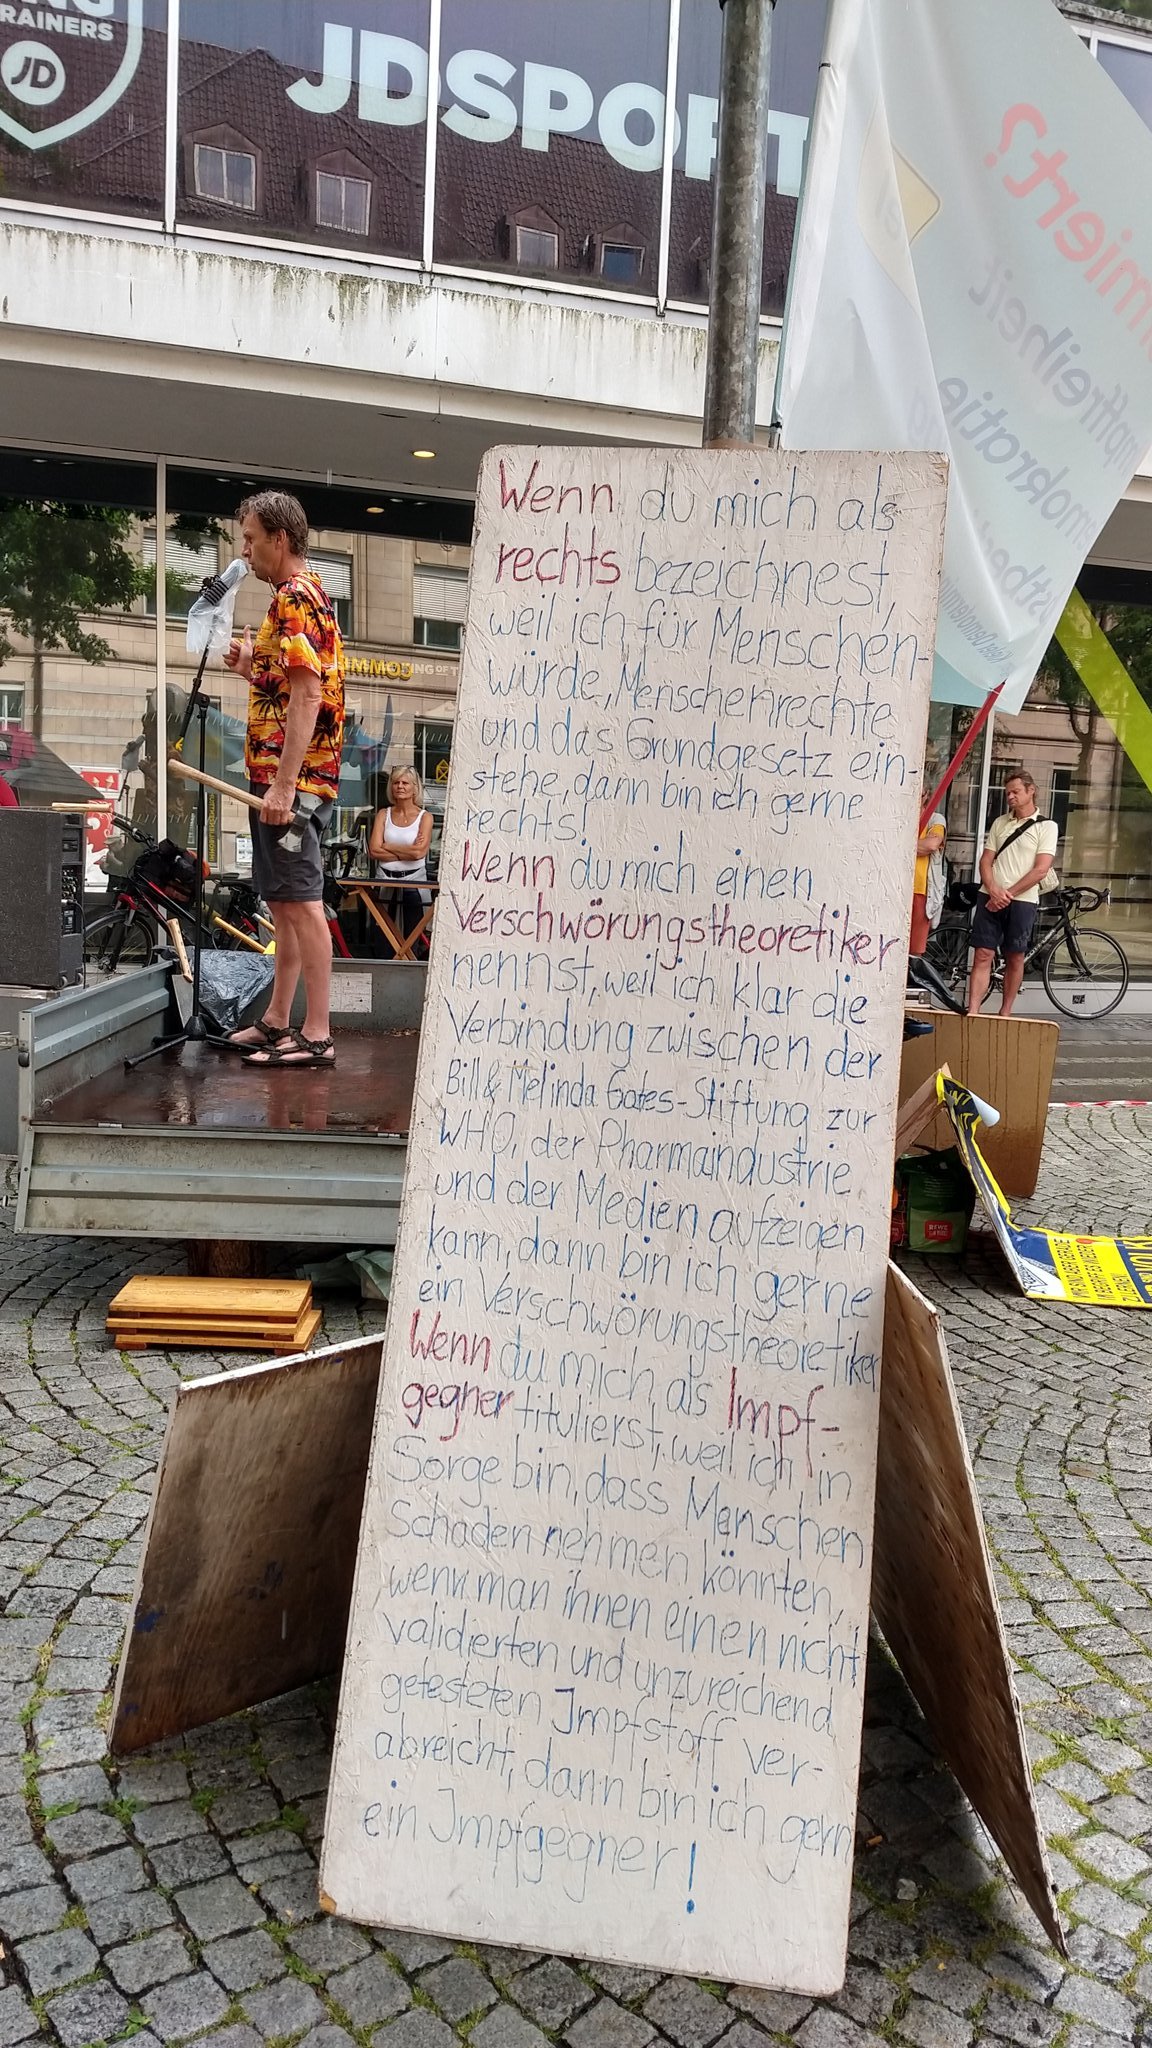 RAINERS
JD
JDSPORT
Wenn du mich als
rechts bezeichnest,
weil ich für Menschen-
würde, Menschenrechte
und das Grundgesetz ein-
stehe, dann bin ich gerne
rechts!
Wenn du mich einen
Verschwörungstheoretiker
nennst, weil ich klar die
Verbindung zwischen der
Bill & Melinda Gates-Stiftung zur
WHO, der Pharmaindustrie
und der Medien aufzeigen
kann, dann bin ich gerne
ein Verschwörungstheoretiker
Wenn du mich als Impf-
gegner titulierst, weil ich in
Sorge bin, dass Menschen
Schaden nehmen könnten,
wenn man ihnen einen nicht
validierten und unzureichend
getesteten Impfstoff ver-
abreicht, dann bin ich gern
ein Impfgegner!
miert?
pffreiheit
mokratie
REWE